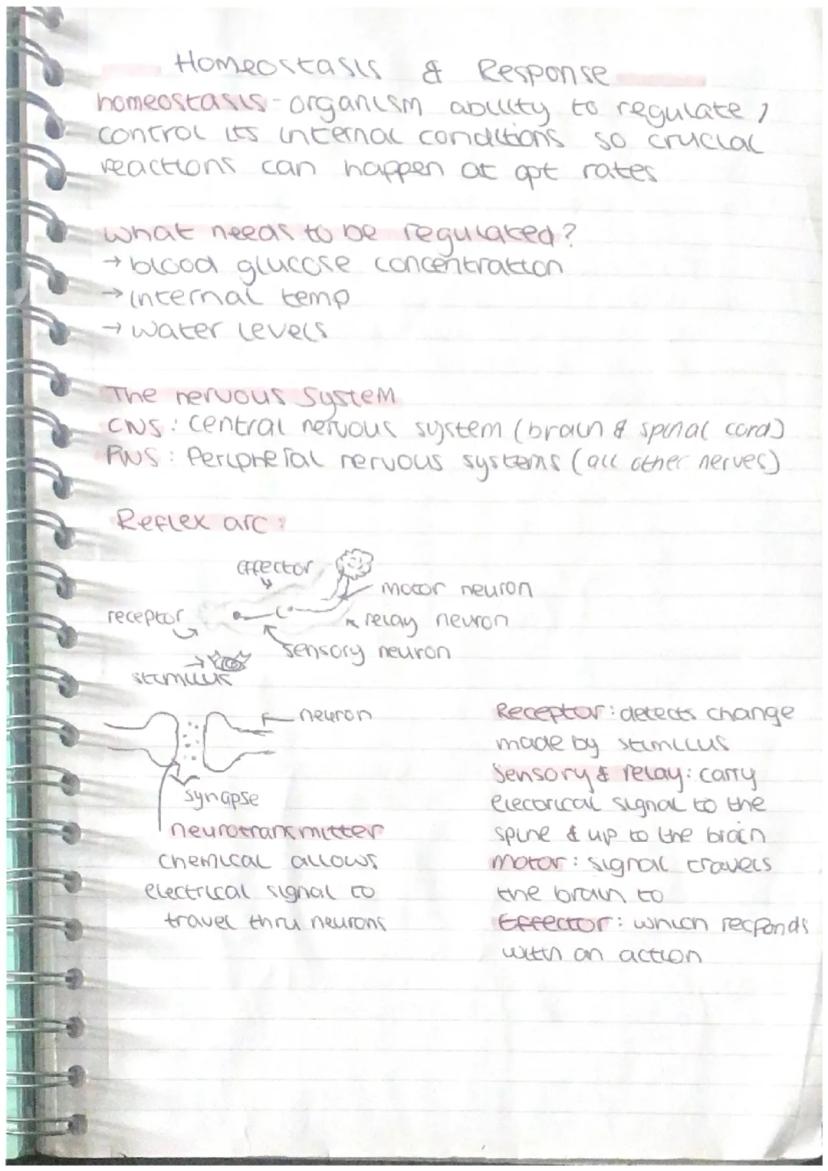 Homeostasis & Response
homeostasis - organism ability to regulate /
control its internal conditions so crucial
reactions can happen at opt rates
What needs to be regulated?
→ blood glucose concentration
→ internal temp
→ water levels
The nervous system
CNS : Central nervous system (brain & spinal cord)
PNS : Peripheral nervous systems (all other nerves)
Reflex arc :
effector
motor neuron
receptor
relay neuron
sensory neuron
stimulus
neuron
synapse
neurotransmitter
chemical allows
electrical signal to
travel thru neurons
Receptor : detects change
made by stimulus
Sensory & relay : carry
electrical signal to the
spine & up to the brain
Motor : signal travels
the brain to
Effector : which responds
with an action